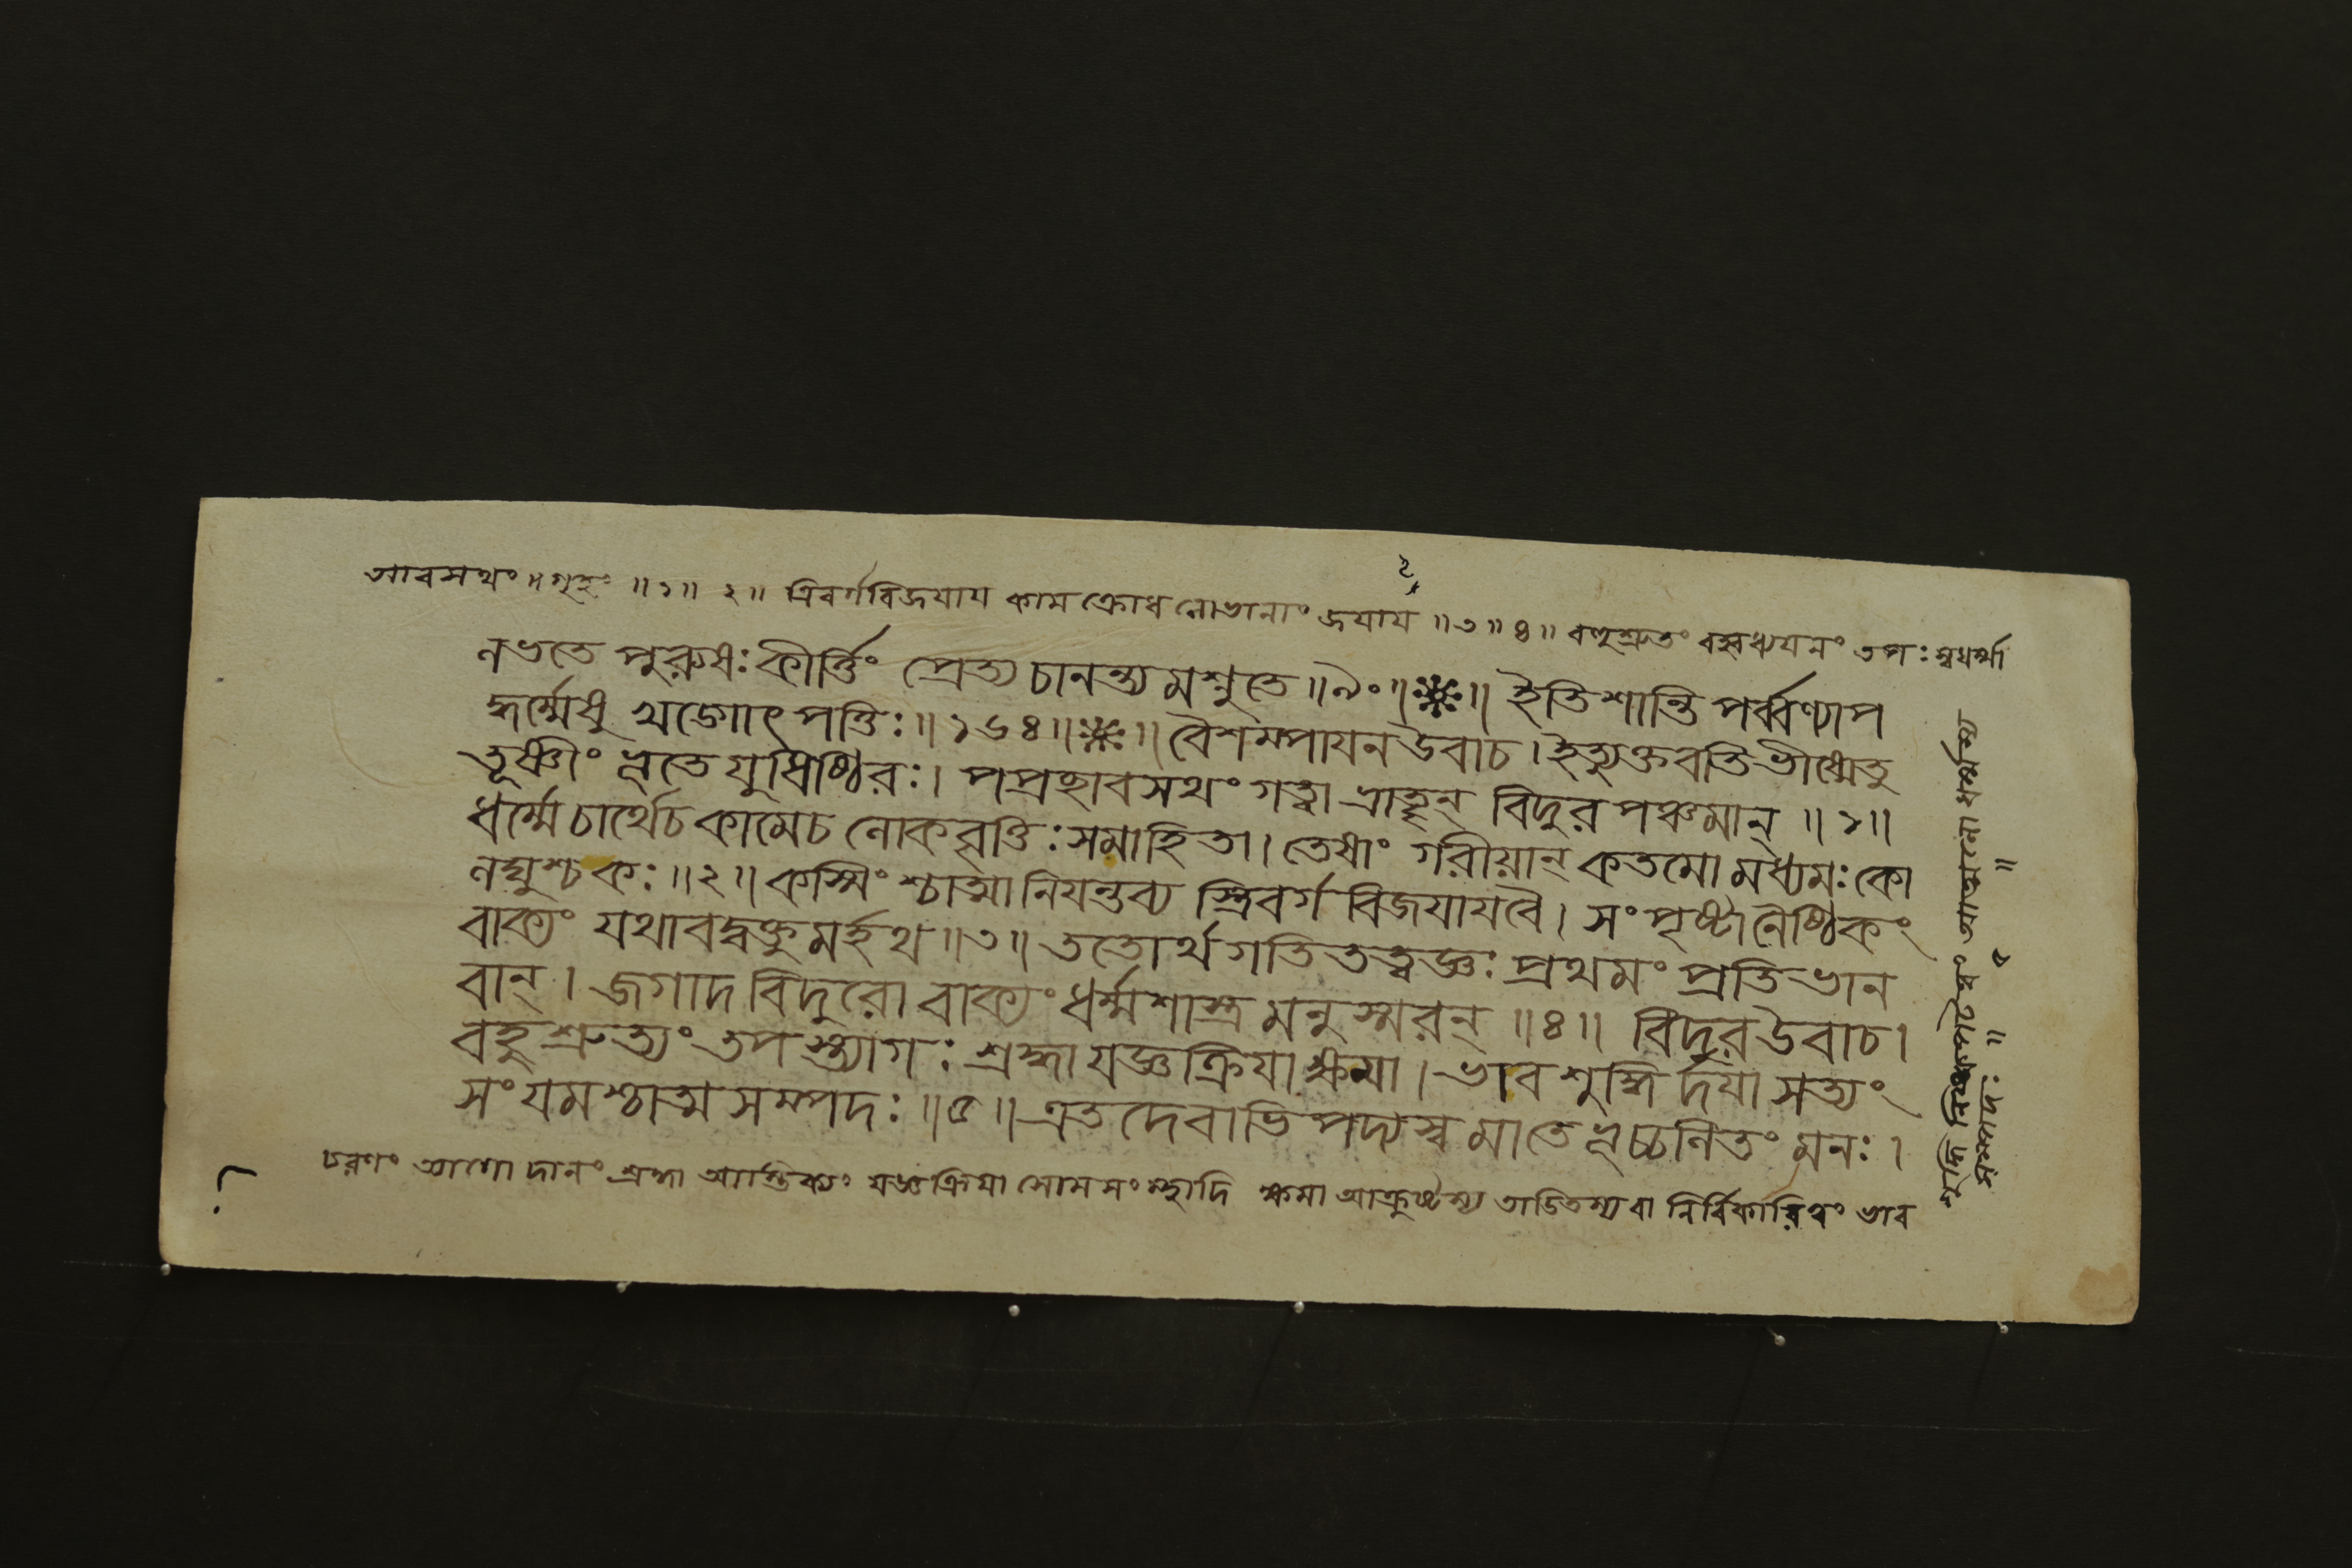 আবসথং ॥ গৃহং ॥১॥ ২॥ ত্রিবর্গবিজয়ায কামক্রোধলোভানাং জযায ॥৩॥৪॥ বহুশ্রুতং বহ্বধ্যযনং তপঃ স্বধর্ম্মা
লভতে পুরুষঃ কীর্ত্তিং প্রেত্য চানন্ত্যমশ্নুতে ॥৯০॥ ॥ ইতি শান্তিপর্ব্বণ্যাপ
দ্ধর্ম্মেষু খড়্গোৎপত্তিঃ ॥১৬৪॥ ॥ বৈশম্পাযন উবাচ। ইত্যুক্তবতি ভীষ্মেতু
তূষ্ণীং ভূতে যুধিষ্ঠিরঃ। পপ্রচ্ছাবসথং গত্বা ভ্রাতৄন্ বিদুরপঞ্চমান্ ॥১॥
ধর্ম্মে চার্থেচ কামেচ লোকবৃত্তিঃ সমাহিতা। তেষাং গরীয়ান্ কতমো মধ্যমঃ কো
লঘুশ্চ কঃ ॥২॥ কস্মিংশ্চাত্মা নিযন্তব্য স্ত্রিবর্গবিজযাযবৈ। সংপৃষ্টা নৈষ্ঠিকং
বাক্যং যথাবদ্বক্তুমর্হথ ॥৩॥ ততোর্থগতিতত্ত্বজ্ঞঃ প্রথমং প্রতিভান
বান্। জগাদ বিদুরো বাক্যং ধর্ম্মশাস্ত্রমনুস্মরন্ ॥৪॥ বিদুর উবাচ।
বহুশ্রুত্যং তপস্ত্যাগঃ শ্রদ্ধা যজ্ঞক্রিযা ক্ষমা। ভাবশুদ্ধির্দযা সত্যং
সংযমশ্চাত্মসম্পদঃ ॥৫॥ এতদেবাভিপদ্যস্ব মাতেভূচ্চলিতং মনঃ।
চরণং ত্যাগো দানং শ্রদ্ধা আস্তিক্যং যজ্ঞক্রিযা সোমসংস্থাদি ক্ষমা আক্রুষ্টস্য তাডিতস্য বা নির্বিকারিত্বং ভাব
সম্পদঃ ॥ ৫ ॥